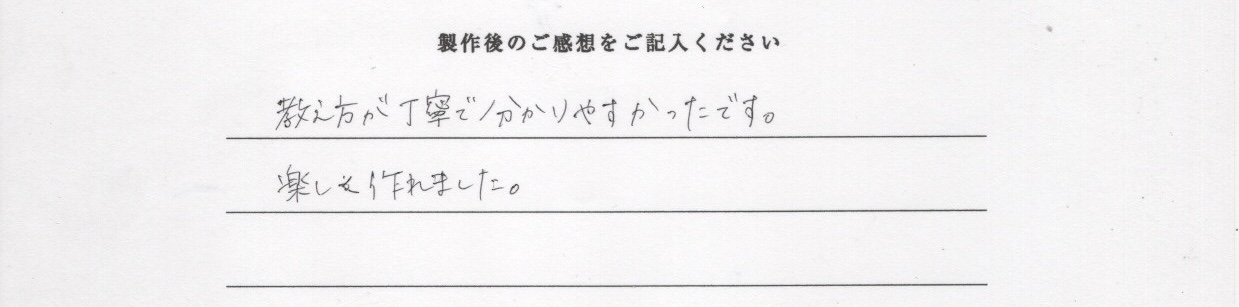 製作後のご感想をご記入ください
教え方が丁寧で分かりやすかったです。
楽しく作れました。